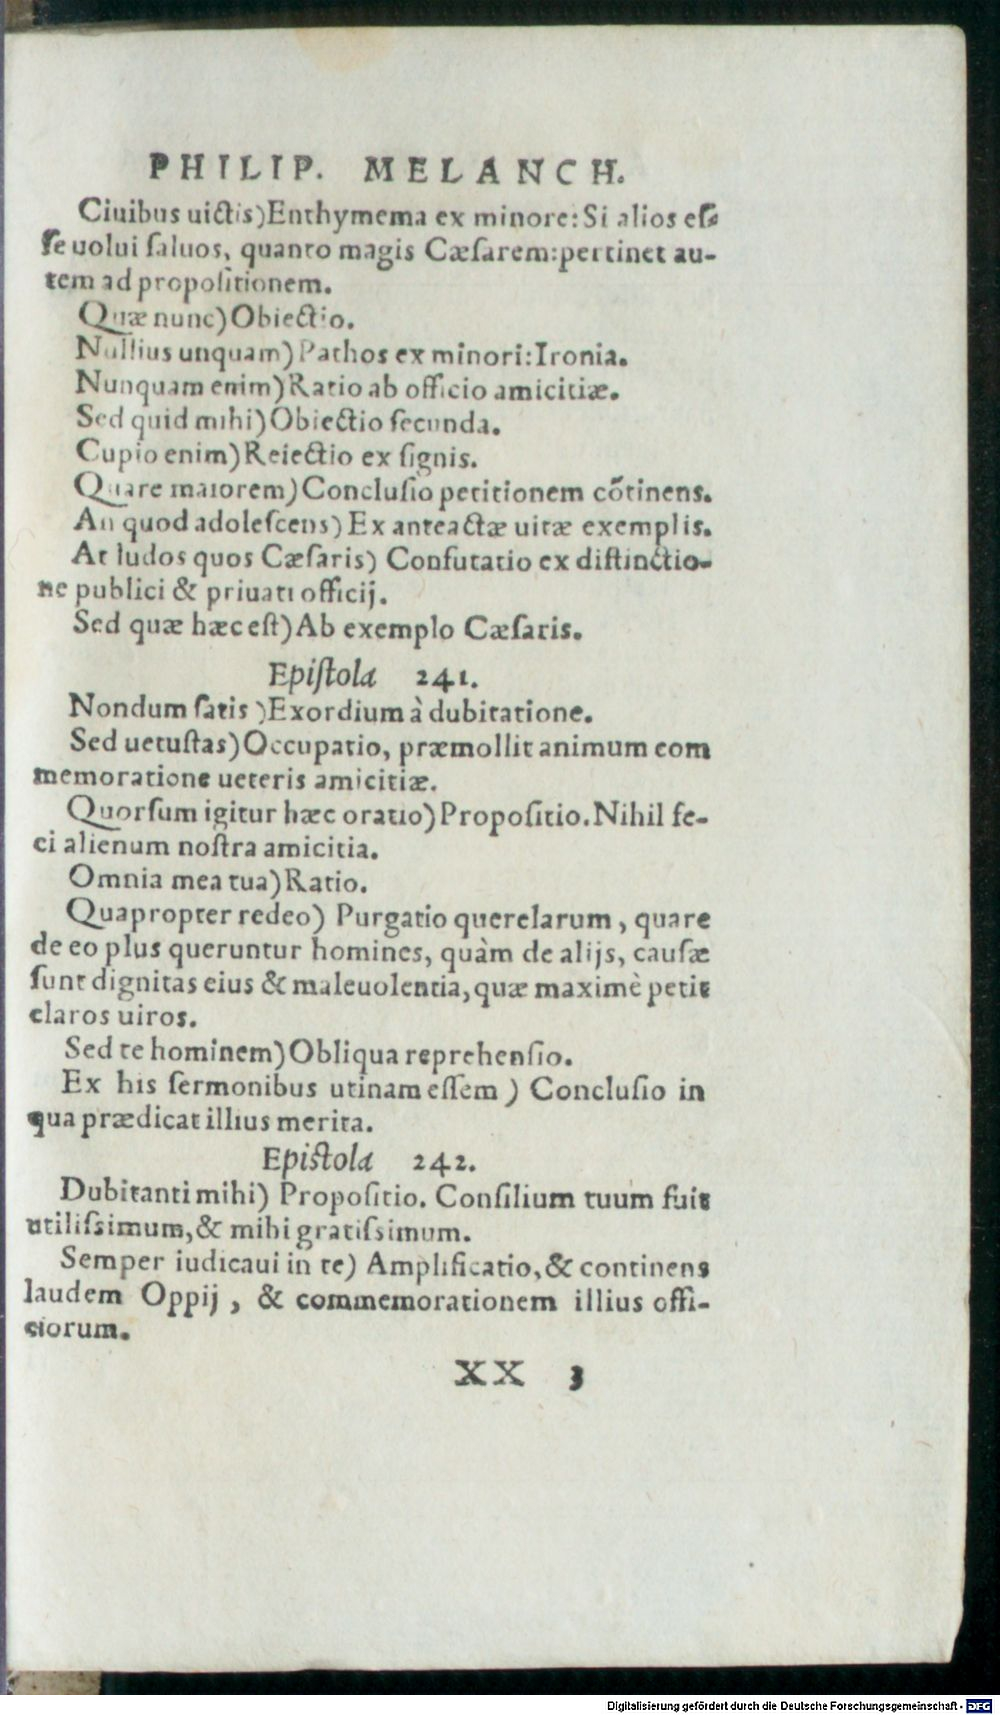 PHILIP. MELANCH.
Ciuibus uictis)Enthymema ex minore: Si alios es-
se uolui saluos, quanto magis Cæsarem: pertinet au-
tem ad propositionem.
Quæ nunc)Obiectio.
Nullius unquam)Pathos ex minori: Ironia.
Nunquam enim)Ratio ab officio amicitiæ.
Sed quid mihi)Obiectio secunda.
Cupio enim)Reiectio ex signis.
Quare maiorem)Conclusio petitionem cõtinens.
An quod adolescens)Ex anteactæ uitæ exemplis.
At ludos quos Cæsaris) Confutatio ex distinctio-
ne publici & priuati officij.
Sed quæ hæc est)Ab exemplo Cæsaris.
Epistola 241.
Nondum satis)Exordium à dubitatione.
Sed uetustas)Occupatio, præmollit animum com
memoratione ueteris amicitiæ.
Quorsum igitur hæc oratio)Propositio. Nihil fe-
ci alienum nostra amicitia.
Omnia mea tua)Ratio.
Quapropter redeo) Purgatio querelarum, quare
de eo plus queruntur homines, quàm de alijs, causæ
sunt dignitas eius & maleuolentia, quæ maximè petit
claros uiros.
Sed te hominem)Obliqua reprehensio.
Ex his sermonibus utinam essem) Conclusio in
qua prædicat illius merita.
Epistola 242.
Dubitanti mihi) Propositio. Consilium tuum fuit
utilissimum, & mihi gratissimum.
Semper iudicaui in te) Amplificatio, & continens
laudem Oppij, & commemorationem illius offi-
ciorum.
XX 3
Digitalisierung gefördert durch die Deutsche Forschungsgemeinschaft - DFG